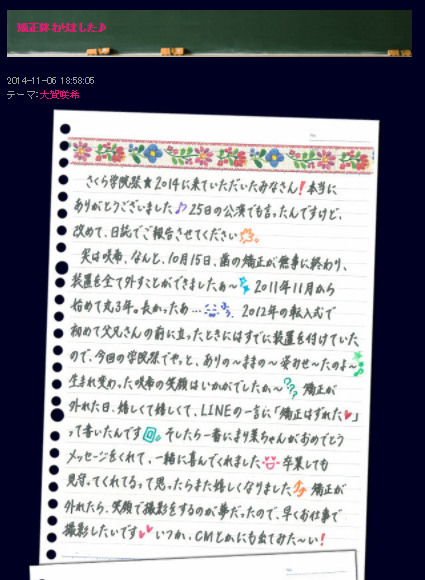 矯正終わりました♪
2014-11-06 18:58:05
テーマ：大賀咲希
さくら学院祭★2014に来ていただいたみなさん！本当に
ありがとうございました♪25日の公演でも言ったんですけど、
改めて、日誌でご報告させてください
実は咲希、なんと、10月15日、歯の矯正が無事に終わり、
装置を全て外すことができましたぁ〜 2011年11月から
始めて丸3年。長かったぁ… 2012年の転入式で
初めて父兄さんの前に立ったときにはすでに装置を付けていた
ので、今回の学院祭でやっと、ありの〜ままの〜姿みせ〜たのよ〜
生まれ変わった咲希の笑顔はいかがでしたか〜?? 矯正が
外れた日、嬉しくて嬉しくて、LINEの一言に「矯正はずれた♥」
って書いたんです そしたら一番にまり菜ちゃんがおめでとう
メッセージをくれて、一緒に喜んでくれました 卒業しても
見守ってくれてるって思ったらまた嬉しくなりました 矯正が
外れたら、笑顔で撮影をするのが夢だったので、早くお仕事で
撮影したいです いつか、CMとかにも出てみた〜い！